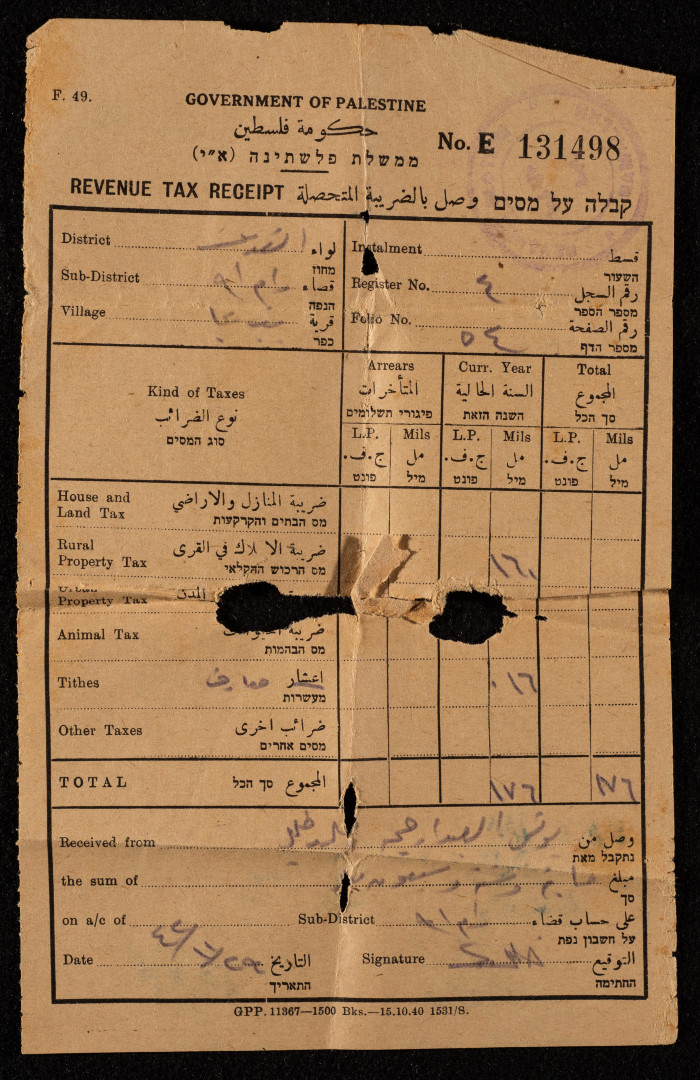 F. 49.
GOVERNMENT OF PALESTINE
حكومة فلسطين
ממשלת פלשתינה (א״י)
No. E 131498
REVENUE TAX RECEIPT وصل بالضريبة المتحصلة קבלה על מסים
District القدس لواء
מחוז
Sub-District رام الله قضاء
הנפה
Village قرية
כפר
Instalment قسط
השעור
Register No. ٤ رقم السجل
מספר הספר
Folio No. ٥٤ رقم الصفحة
מספר הדף
Kind of Taxes
نوع الضرائب
סוג המסים
Arrears
المتأخرات
פיגורי תשלומים
Curr. Year
السنة الحالية
השנה הזאת
Total
المجموع
סך הכל
L.P. Mils L.P. Mils L.P. Mils
ج.ف. مل ج.ف. مل ج.ف. مل
פונט מיל פונט מיל פונט מיל
House and Land Tax ضريبة المنازل والاراضي
מס הבתים והקרקעות
Rural Property Tax ضريبة الاملاك في القرى ١٦٠
מס הרכוש החקלאי
Urban Property Tax المدن
Animal Tax ضريبة
מס הבהמות
Tithes اعشار معارف ٠١٦
מעשרות
Other Taxes ضرائب اخرى
מסים אחרים
TOTAL المجموع סך הכל ١٧٦ ١٧٦
Received from وصل من
נתקבל מאת
the sum of مبلغ
סך
on a/c of Sub-District رام الله على حساب قضاء
על חשבון נפת
Date التاريخ
התאריך
Signature التوقيع
החתימה
GPP. 11367—1500 Bks.—15.10.40 1531/S.